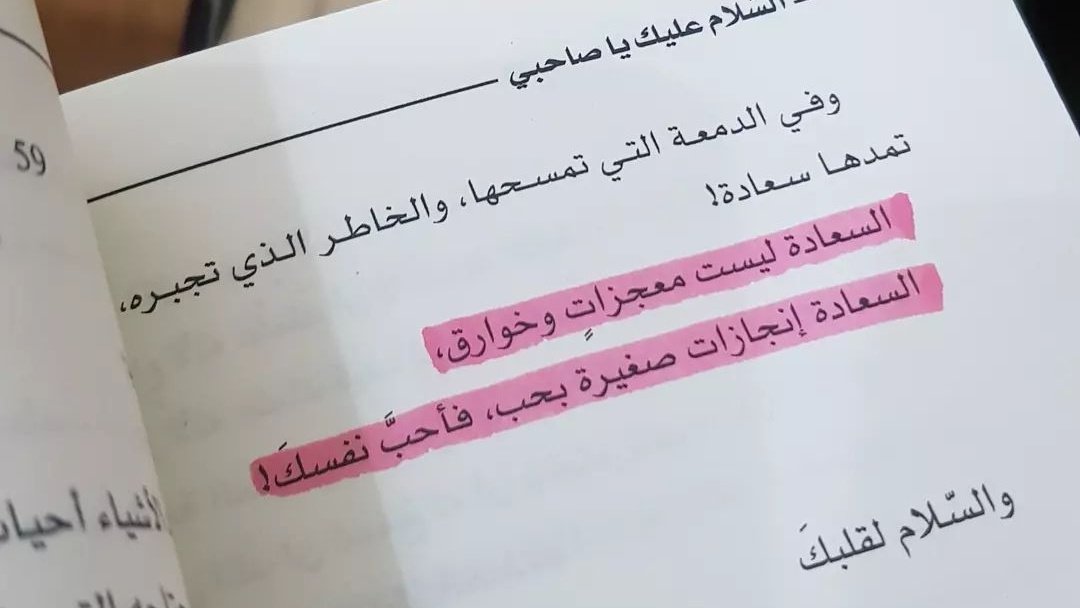 السلام عليك يا صاحبي
وفي الدمعة التي تمسحها، والخاطر الذي تجبره،
تمدها سعادة!
السعادة ليست معجزاتٍ وخوارق،
السعادة إنجازات صغيرة بحب، فأحبَّ نفسكَ!
والسّلام لقلبكَ
59